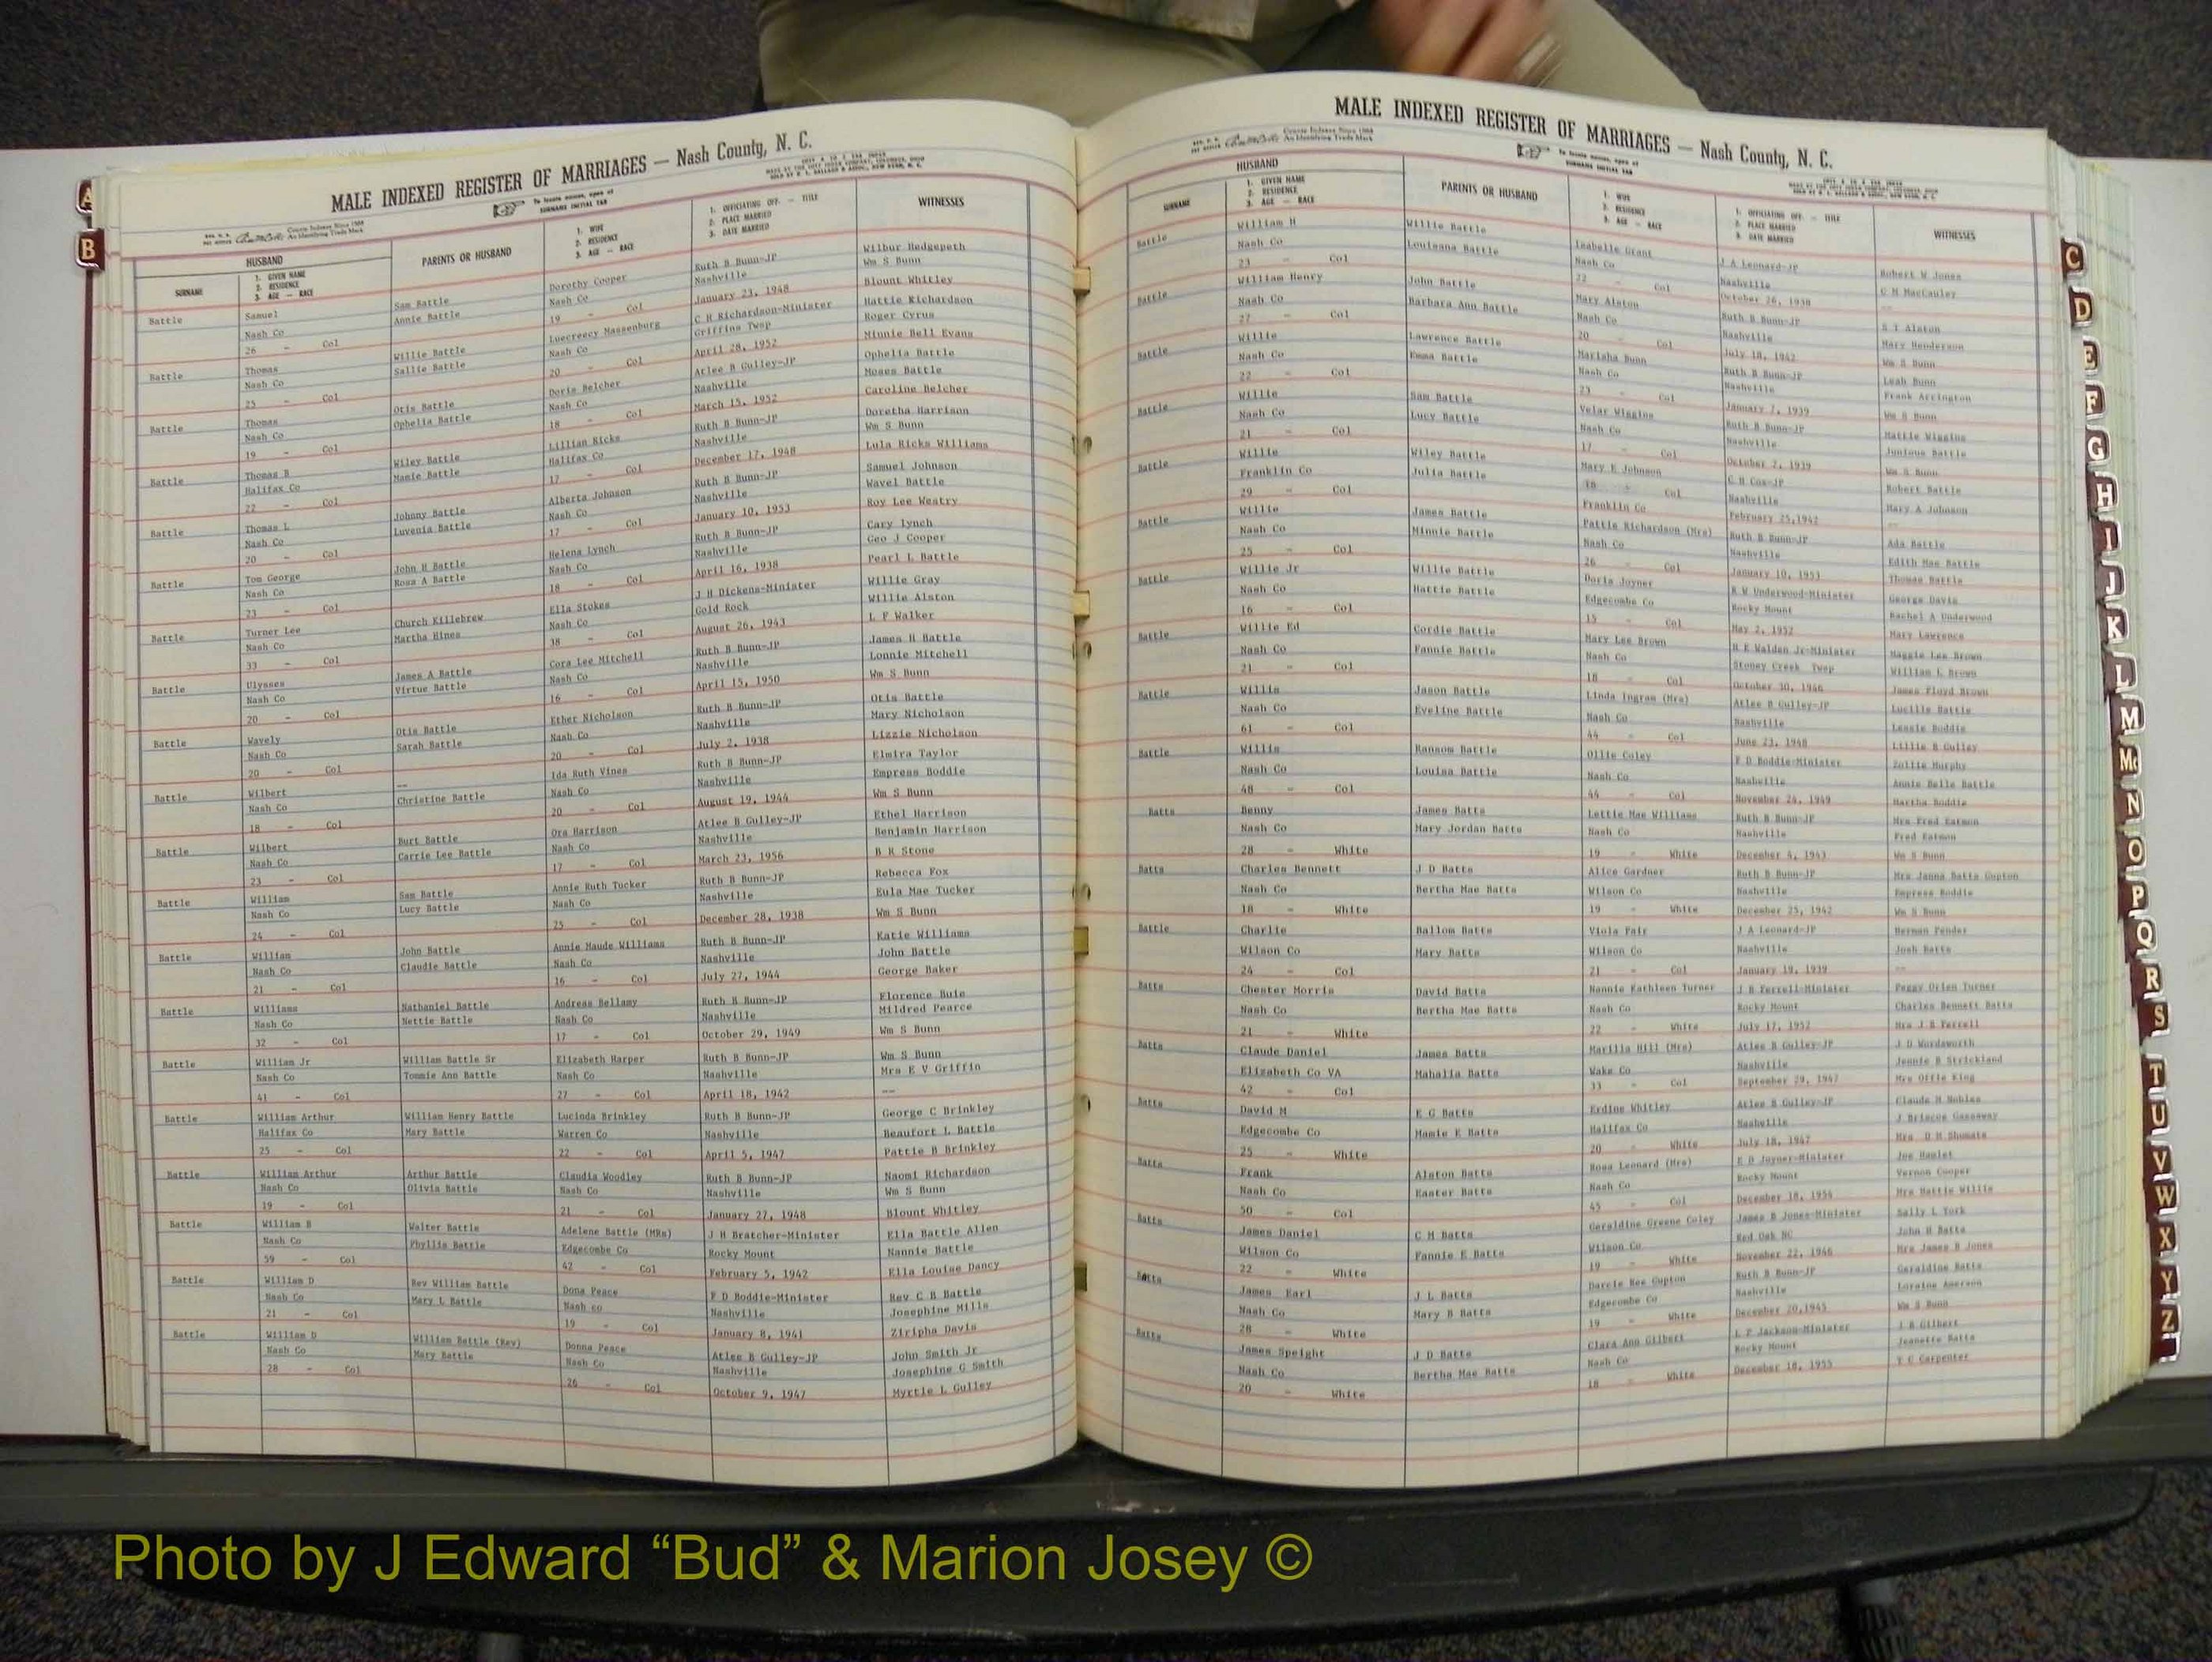 MALE INDEXED REGISTER OF MARRIAGES — Nash County, N. C.
HUSBAND
SURNAME
1. GIVEN NAME
2. RESIDENCE
3. AGE — RACE
PARENTS OR HUSBAND
1. WIFE
2. RESIDENCE
3. AGE — RACE
1. OFFICIATING OFF. — TITLE
2. PLACE MARRIED
3. DATE MARRIED
WITNESSES
Battle Samuel Sam Battle Dorothy Cooper Ruth B Bunn-JP Wilbur Hedgepeth
Nash Co Annie Battle Nash Co Nashville Wm S Bunn
26 - Col 19 - Col January 23, 1948 Blount Whitley
Battle Thomas Willie Battle Luecreecy Massenburg C H Richardson-Minister Hattie Richardson
Nash Co Sallie Battle Nash Co Griffins Twsp Roger Cyrus
25 - Col 20 - Col April 28, 1952 Minnie Bell Evans
Battle Thomas Otis Battle Doris Belcher Atlee B Gulley-JP Ophelia Battle
Nash Co Ophelia Battle Nash Co Nashville Moses Battle
19 - Col 18 - Col March 15, 1952 Caroline Belcher
Battle Thomas B Wiley Battle Lillian Ricks Ruth B Bunn-JP Doretha Harrison
Halifax Co Mamie Battle Halifax Co Nashville Wm S Bunn
22 - Col 17 - Col December 17, 1948 Lula Ricks Williams
Battle Thomas L Johnny Battle Alberta Johnson Ruth B Bunn-JP Samuel Johnson
Nash Co Luvenia Battle Nash Co Nashville Wavel Battle
20 - Col 17 - Col January 10, 1953 Roy Lee Westry
Battle Tom George John H Battle Helena Lynch Ruth B Bunn-JP Cary Lynch
Nash Co Rosa A Battle Nash Co Nashville Geo J Cooper
23 - Col 18 - Col April 16, 1938 Pearl L Battle
Battle Turner Lee Church Killebrew Ella Stokes J H Dickens-Minister Willie Gray
Nash Co Martha Hines Nash Co Gold Rock Willie Alston
33 - Col 38 - Col August 26, 1943 L F Walker
Battle Ulysses James A Battle Cora Lee Mitchell Ruth B Bunn-JP James H Battle
Nash Co Virtue Battle Nash Co Nashville Lonnie Mitchell
20 - Col 16 - Col April 15, 1950 Wm S Bunn
Battle Wavely Otis Battle Ether Nicholson Ruth B Bunn-JP Otis Battle
Nash Co Sarah Battle Nash Co Nashville Mary Nicholson
20 - Col 20 - Col July 2, 1938 Lizzie Nicholson
Battle Wilbert -- Ida Ruth Vines Ruth B Bunn-JP Elmira Taylor
Nash Co Christine Battle Nash Co Nashville Empress Boddie
18 - Col 20 - Col August 19, 1944 Wm S Bunn
Battle Wilbert Burt Battle Ora Harrison Atlee B Gulley-JP Ethel Harrison
Nash Co Carrie Lee Battle Nash Co Nashville Benjamin Harrison
23 - Col 17 - Col March 23, 1956 B R Stone
Battle William Sam Battle Annie Ruth Tucker Ruth B Bunn-JP Rebecca Fox
Nash Co Lucy Battle Nash Co Nashville Eula Mae Tucker
24 - Col 25 - Col December 28, 1938 Wm S Bunn
Battle William John Battle Annie Maude Williams Ruth B Bunn-JP Katie Williams
Nash Co Claudie Battle Nash Co Nashville John Battle
21 - Col 16 - Col July 27, 1944 George Baker
Battle Williams Nathaniel Battle Andreas Bellamy Ruth B Bunn-JP Florence Buie
Nash Co Nettie Battle Nash Co Nashville Mildred Pearce
32 - Col 17 - Col October 29, 1949 Wm S Bunn
Battle William Jr William Battle Sr Elizabeth Harper Ruth B Bunn-JP Wm S Bunn
Nash Co Tommie Ann Battle Nash Co Nashville Mrs E V Griffin
41 - Col 27 - Col April 18, 1942 --
Battle William Arthur William Henry Battle Lucinda Brinkley Ruth B Bunn-JP George C Brinkley
Halifax Co Mary Battle Warren Co Nashville Beaufort L Battle
25 - Col 22 - Col April 5, 1947 Pattie B Brinkley
Battle William Arthur Arthur Battle Claudia Woodley Ruth B Bunn-JP Naomi Richardson
Nash Co Olivia Battle Nash Co Nashville Wm S Bunn
19 - Col 21 - Col January 27, 1948 Blount Whitley
Battle William B Walter Battle Adelene Battle (MRs) J H Bratcher-Minister Ella Battle Allen
Nash Co Phyllis Battle Edgecombe Co Rocky Mount Nannie Battle
59 - Col 42 - Col February 5, 1942 Ella Louise Dancy
Battle William D Rev William Battle Dona Peace F D Boddie-Minister Rev C B Battle
Nash Co Mary L Battle Nash co Nashville Josephine Mills
21 - Col 19 - Col January 8, 1941 Ziripha Davis
Battle William D William Battle (Rev) Donna Peace Atlee B Gulley-JP John Smith Jr
Nash Co Mary Battle Nash Co Nashville Josephine G Smith
28 - Col 26 - Col October 9, 1947 Myrtle L Gulley
MALE INDEXED REGISTER OF MARRIAGES — Nash County, N. C.
HUSBAND
SURNAME
1. GIVEN NAME
2. RESIDENCE
3. AGE — RACE
PARENTS OR HUSBAND
1. WIFE
2. RESIDENCE
3. AGE — RACE
1. OFFICIATING OFF. — TITLE
2. PLACE MARRIED
3. DATE MARRIED
WITNESSES
Battle William H Willie Battle Isabelle Grant J A Leonard-JP Robert W Jones
Nash Co Louisana Battle Nash Co Nashville C H MacCauley
23 - Col 22 - Col October 26, 1938 --
Battle William Henry John Battle Mary Alston Ruth B Bunn-JP S T Alston
Nash Co Barbara Ann Battle Nash Co Nashville Mary Henderson
27 - Col 20 - Col July 18, 1942 Wm S Bunn
Battle Willie Lawrence Battle Marisha Bunn Ruth B Bunn-JP Leah Bunn
Nash Co Emma Battle Nash Co Nashville Frank Arrington
22 - Col 23 - Col January 7, 1939 Wm S Bunn
Battle Willie Sam Battle Velar Wiggins Ruth B Bunn-JP Mattie Wiggins
Nash Co Lucy Battle Nash Co Nashville Junious Battle
21 - Col 17 - Col October 7, 1939 Wm S Bunn
Battle Willie Wiley Battle Mary E Johnson C H Cox-JP Robert Battle
Franklin Co Julia Battle 18 - Col Nashville Mary A Johnson
29 - Col Franklin Co February 25,1942 --
Battle Willie James Battle Pattie Richardson (Mrs) Ruth B Bunn-JP Ada Battle
Nash Co Minnie Battle Nash Co Nashville Edith Mae Battle
25 - Col 26 - Col January 10, 1953 Thomas Battle
Battle Willie Jr Willie Battle Doris Joyner R W Underwood-Minister George Davis
Nash Co Hattie Battle Edgecombe Co Rocky Mount Rachel A Underwood
16 - Col 15 - Col May 2, 1952 Mary Lawrence
Battle Willie Ed Cordie Battle Mary Lee Brown H E Walden Jr-Minister Maggie Lee Brown
Nash Co Fannie Battle Nash Co Stoney Creek Twsp William L Brown
21 - Col 18 - Col October 30, 1946 James Floyd Brown
Battle Willis Jason Battle Linda Ingram (Mrs) Atlee B Gulley-JP Lucille Battle
Nash Co Eveline Battle Nash Co Nashville Lessie Boddie
61 - Col 44 - Col June 23, 1948 Lillie B Gulley
Battle Willis Ransom Battle Ollie Coley F D Boddie-Minister Zollie Murphy
Nash Co Louisa Battle Nash Co Nashville Annie Belle Battle
48 - Col 44 - Col November 24, 1949 Martha Boddie
Batts Benny James Batts Lettie Mae Williams Ruth B Bunn-JP Mrs Fred Eatmon
Nash Co Mary Jordan Batts Nash Co Nashville Fred Eatmon
28 - White 19 - White December 4, 1943 Wm S Bunn
Batts Charles Bennett J D Batts Alice Gardner Ruth B Bunn-JP Mrs Janna Batts Gupton
Nash Co Bertha Mae Batts Wilson Co Nashville Empress Boddie
18 - White 19 - White December 25, 1942 Wm S Bunn
Battle Charlie Ballom Batts Viola Fair J A Leonard-JP Herman Pender
Wilson Co Mary Batts Wilson Co Nashville Josh Batts
24 - Col 21 - Col January 19, 1939 --
Batts Chester Morris David Batts Nannie Kathleen Turner J B Ferrell-Minister Peggy Orien Turner
Nash Co Bertha Mae Batts Nash Co Rocky Mount Charles Bennett Batts
21 - White 22 - White July 17, 1952 Mrs J B Ferrell
Batts Claude Daniel James Batts Marilia Hill (Mrs) Atlee B Gulley-JP J D Wordsworth
Elizabeth Co VA Mahalia Batts Wake Co Nashville Jennie B Strickland
42 - Col 33 - Col September 29, 1947 Mrs Offie King
Batts David M E G Batts Erdine Whitley Atlee B Gulley-JP Claude H Nobles
Edgecombe Co Mamie E Batts Halifax Co Nashville J Briscoe Gassaway
25 - White 20 - White July 18, 1947 Mrs D H Shumate
Batts Frank Alston Batts Rosa Leonard (Mrs) E D Joyner-Minister Joe Hamlet
Nash Co Easter Batts Nash Co Rocky Mount Vernon Cooper
50 - Col 45 - Col December 18, 1954 Mrs Hattie Willis
Batts James Daniel C H Batts Geraldine Greene Coley James B Jones-Minister Sally L York
Wilson Co Fannie E Batts Wilson Co Red Oak NC John H Batts
22 - White 19 - White November 22, 1946 Mrs James B Jones
Batts James Earl J L Batts Darcie Ree Gupton Ruth B Bunn-JP Geraldine Batts
Nash Co Mary B Batts Edgecombe Co Nashville Loraine Amerson
28 - White 19 - White December 20,1945 Wm S Bunn
Batts James Speight J D Batts Clara Ann Gilbert L P Jackson-Minister J B Gilbert
Nash Co Bertha Mae Batts Nash Co Rocky Mount Jeanette Batts
20 - White 18 - White December 18, 1955 T C Carpenter
A
B
C
D
E
F
G
H
I
J
K
L
M
Mc
N
O
P
Q
R
S
T
U
V
W
X
Y
Z
Photo by J Edward “Bud” & Marion Josey ©